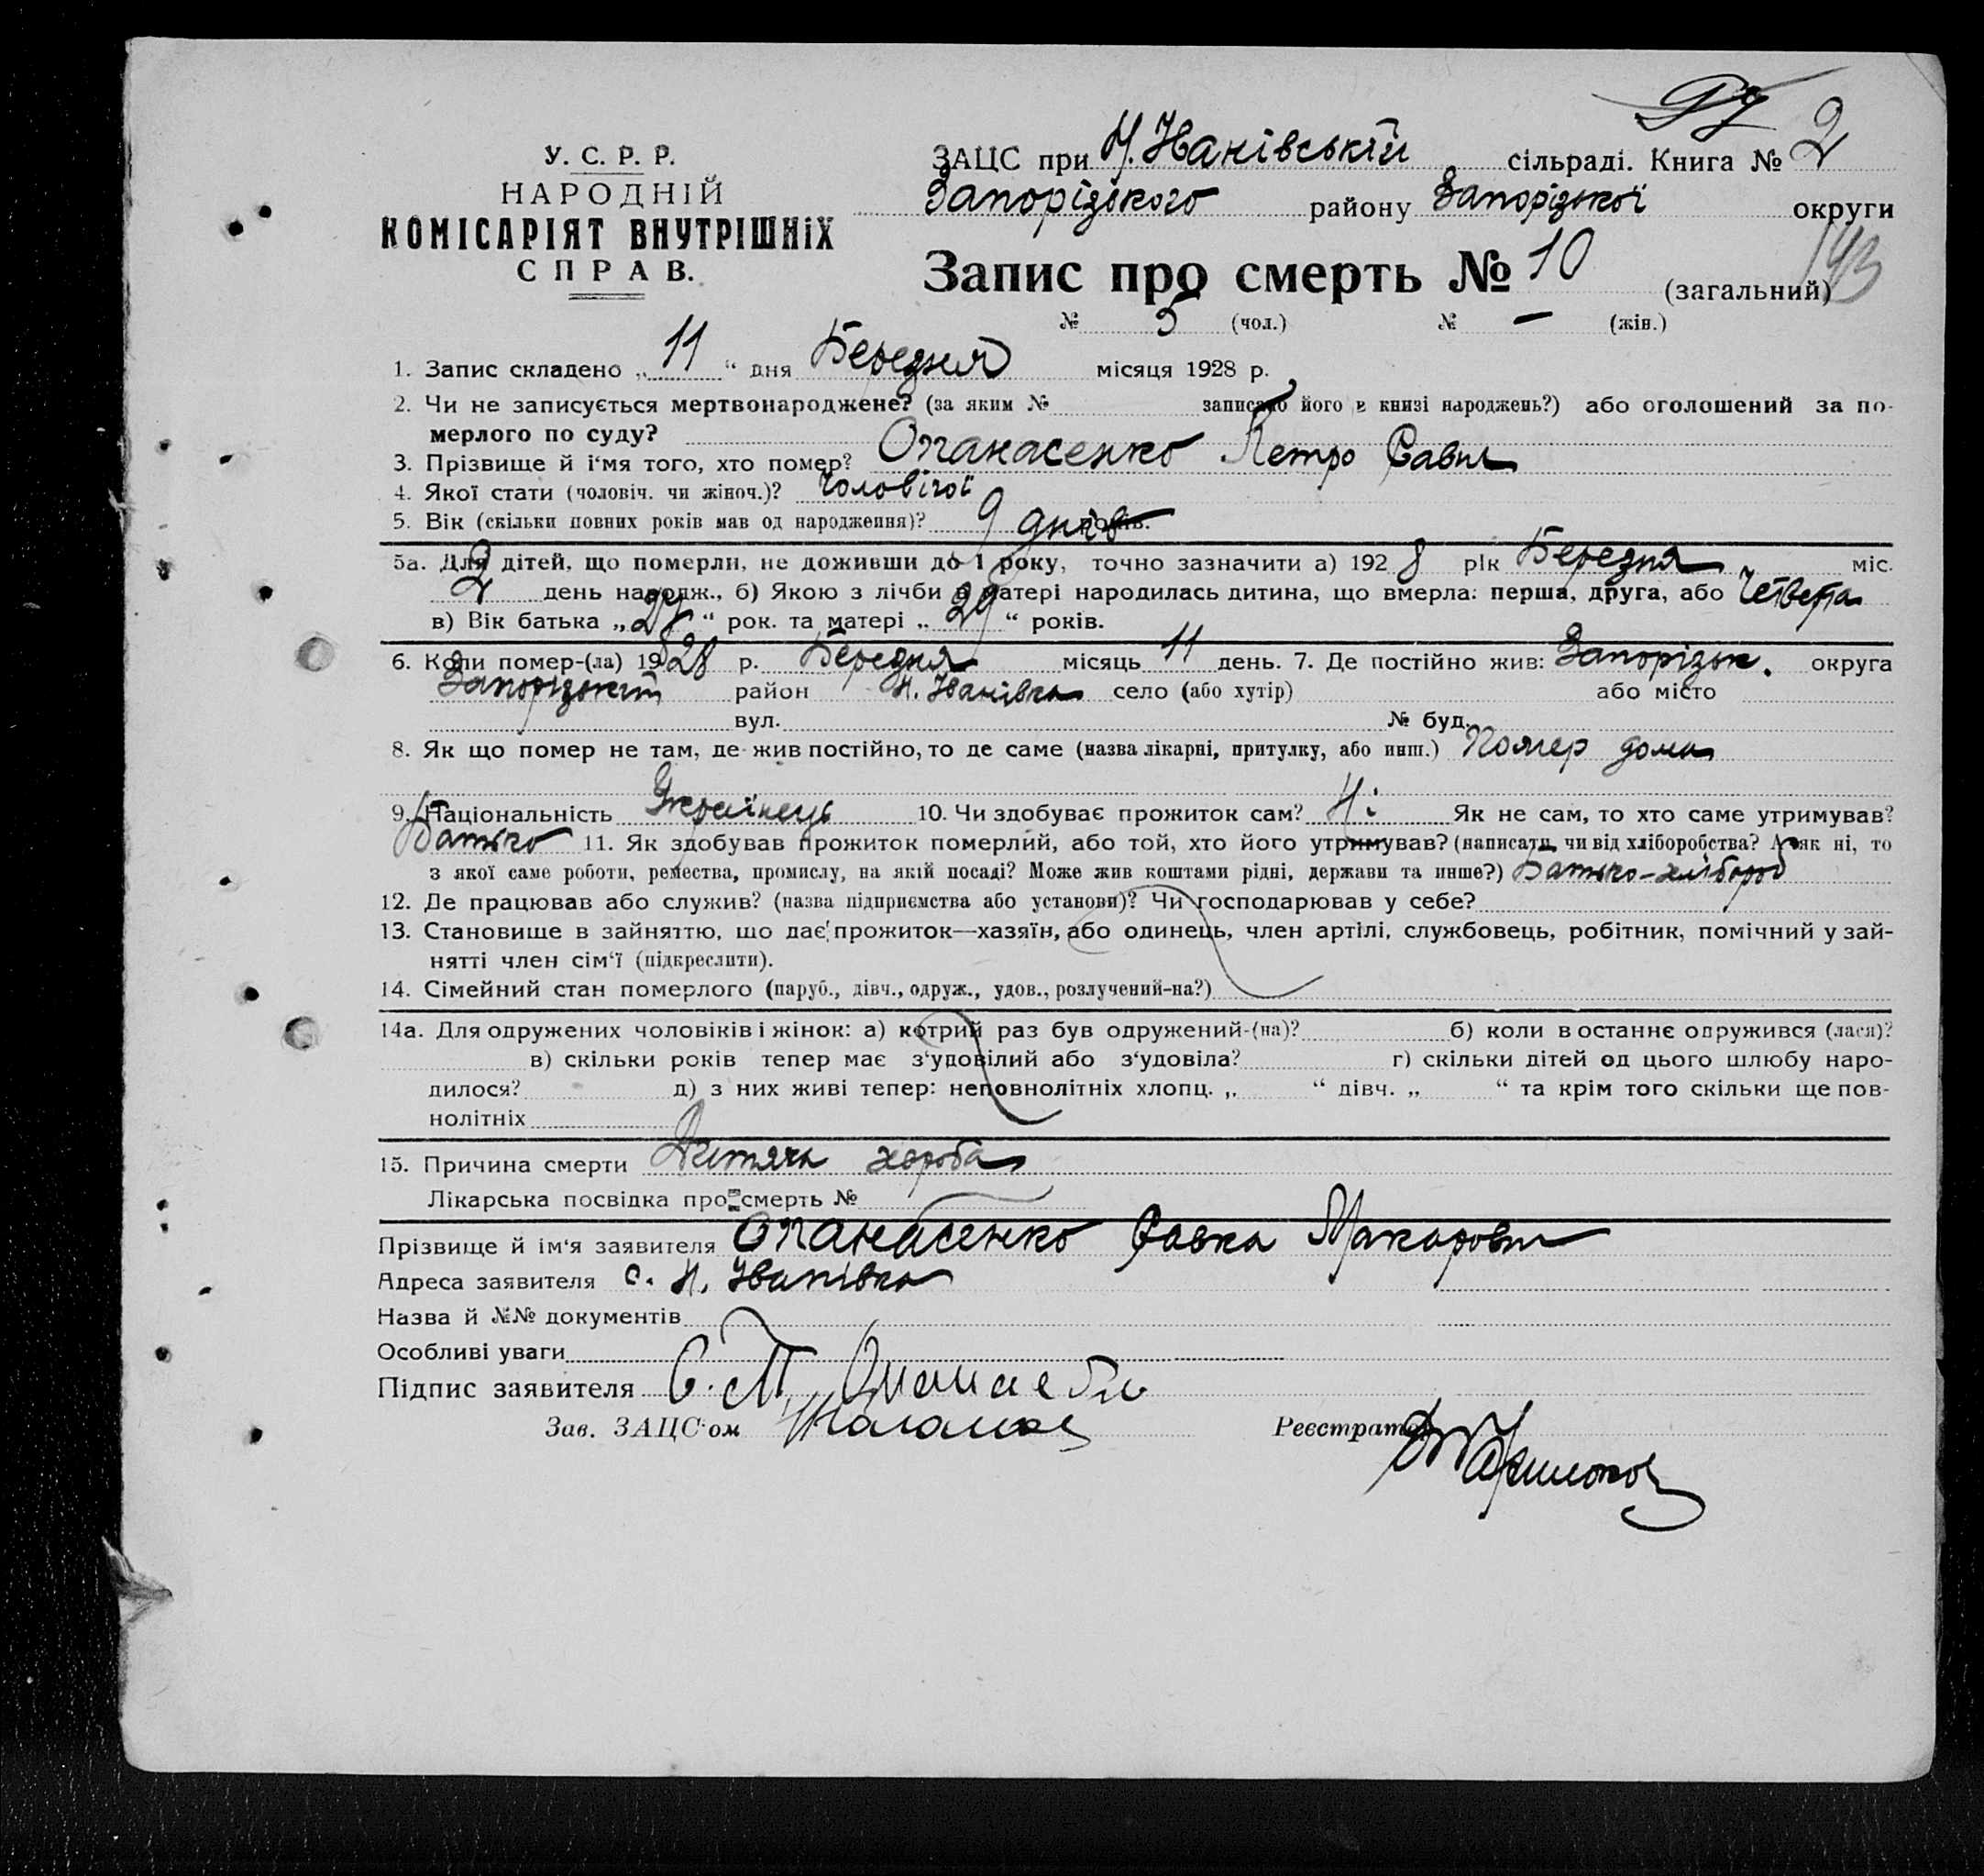 У. С. Р. Р.
НАРОДНІЙ
КОМІСАРІЯТ ВНУТРІШНіХ
СПРАВ.
2
ЗАЦС при Н.Іванівській сільраді. Книга № 2
Запорізького району Запорізької округи
Запис про смерть № 10 (загальний)
№ 5 (чол.) № — (жін.)
1. Запис складено „ 11 “ дня Березня місяця 1928 р.
2. Чи не записується мертвонароджене? (за яким № записано його в книзі народжень?) або оголошений за по-
мерлого по суду?
3. Прізвище й і‘мя того, хто помер? Опанасенко Петро Савич
4. Якої стати (чоловіч. чи жіноч.)? Чоловічої
5. Вік (скільки повних років мав од народження)? 9 днів років.
5а. Для дітей, що померли, не доживши до 1 року, точно зазначити а) 192 8 рік Березня міс.
2 день народж., б) Якою з лічби в матері народилась дитина, що вмерла: перша, друга, або Четверта
в) Вік батька „ “ рок. та матері „ 29 “ років.
6. Коли помер-(ла) 1928 р. Березня місяць 11 день. 7. Де постійно жив: Запорізьк. округа
Запорізький район Н. Іванівка село (або хутір) або місто
вул. № буд.
8. Як що помер не там, де жив постійно, то де саме (назва лікарні, притулку, або инш.) Помер дома
9. Національність Українець 10. Чи здобуває прожиток сам? Ні Як не сам, то хто саме утримував?
Батько 11. Як здобував прожиток померлий, або той, хто його утримував? (написати, чи від хліборобства? А як ні, то
з якої саме роботи, ремества, промислу, на якій посаді? Може жив коштами рідні, держави та инше?) Батько-хлібороб
12. Де працював або служив? (назва підприємства або установи)? Чи господарював у себе?
13. Становище в зайняттю, що дає прожиток—хазяїн, або одинець, член артілі, службовець, робітник, помічний у зай-
нятті член сім‘ї (підкреслити).
14. Сімейний стан померлого (паруб., дівч., одруж., удов., розлучений-на?)
14а. Для одружених чоловіків і жінок: а) котрий раз був одружений-(на)? б) коли востаннє одружився (лася)?
в) скільки років тепер має з‘удовілий або з‘удовіла? г) скільки дітей од цього шлюбу наро-
дилося? д) з них живі тепер: неповнолітніх хлопц. „ “ дівч. „ “ та крім того скільки ще пов-
нолітніх
15. Причина смерти Дитяча хороба
Лікарська посвідка про смерть №
Прізвище й ім‘я заявителя Опанасенко Савка Макарович
Адреса заявителя с. Н. Іванівка
Назва й №№ документів
Особливі уваги
Підпис заявителя С. М.
Зав. ЗАЦС‘ом Реєстратор